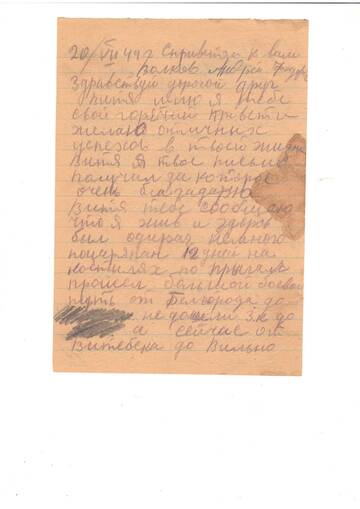 20/VII 44 г С приветом к вам
Волков Андрей
Здравствуй дорогой друг
Витя шлю я тебе
свой горячий привет и
желаю отличных
успехов в твоей жизни
Витя я твое письмо
получил за которое
очень благадарю
Витя тебе сообщаю
что я жив и здоров
был один раз немного
поцарапан 12 дней на
костылях по прыгал
прошел большой боевой
путь от Белгорода до
не дошли 3 к до
а сейчас от
Витебска до Вильно